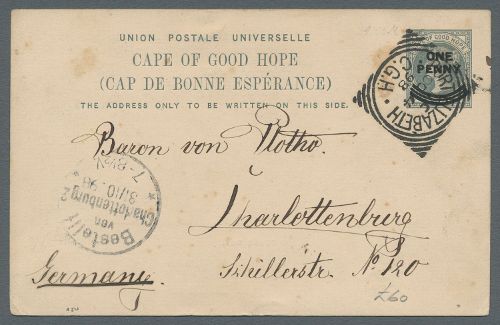 UNION POSTALE UNIVERSELLE
CAPE OF GOOD HOPE
(CAP DE BONNE ESPÉRANCE)
THE ADDRESS ONLY TO BE WRITTEN ON THIS SIDE.
CAPE OF GOOD HOPE
ONE
PENNY
ELIZABETH
C.G.H
98
Baron von Plotho.
Charlottenburg
Schillerstr. No 120
Germany
Bestellt
von
Charlottenburg 2
3/10.98
7-8½V
£60